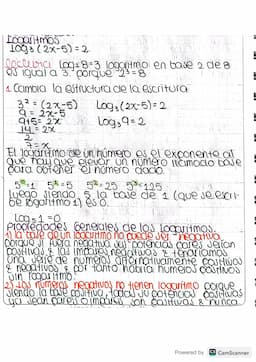 Logaritmos
Log₃ (2x-5) = 2
Lectura Log₂ 8 = 3 logaritmo en base 2 de 8
es igual a 3. porque 2³ = 8
1. Cambia la estructura de la escritura
3² = (2x-5) Log₃ (2x-5) = 2
9 = 2x-5 Log₃ 9 = 2
9+5 = 2x
14 = 2x
2
7 = x
El logaritmo de un número es el exponente al
que hay que elevar un número llamado base
para obtener el número dado.
5⁰=1 5¹=5 5²=25 5³=125
luego siendo 5 la base de 1 (que se escri-
be logaritmo 1) es 0.
Log₅ 1 = 0
Propiedades Generales de los Logaritmos.
1) la base de un logaritmo no puede ser negativa
porque si fuera negativa sus potencias pares serian
positivas y las impares negativas y tendríamos
una serie de números alternativamente positivos
y negativos y por tanto habría números positivos
sin logaritmo.
2) Los números negativos no tienen logaritmo porque
siendo la base positiva, todas su potencias positivas
ya sean pares o impares son positivas y nunca
Powered by CamScanner